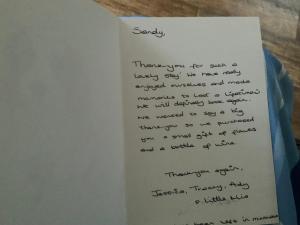 Sandy,
Thank you for such a
lovely stay! We have really
enjoyed ourselves and made
memories to last a lifetime!
We will definitely book again.
We wanted to say a big
thank you so we purchased
you a small gift of glasses
and a bottle of wine
Thank you again,
Jessica, Tracey, Ady
& little
been left in